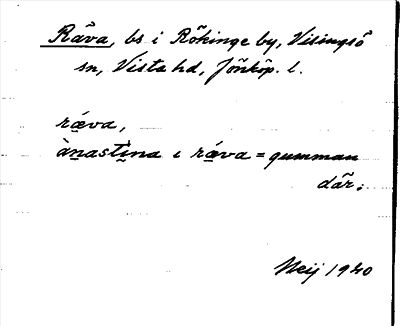 Räva, bs i Rökinge by, Visingsö
sn, Vista hd, Jönköp. l.
rǽ̱va,
àṉastḭ̀na i rǽ̱va = gumman
där.
Neij 1940